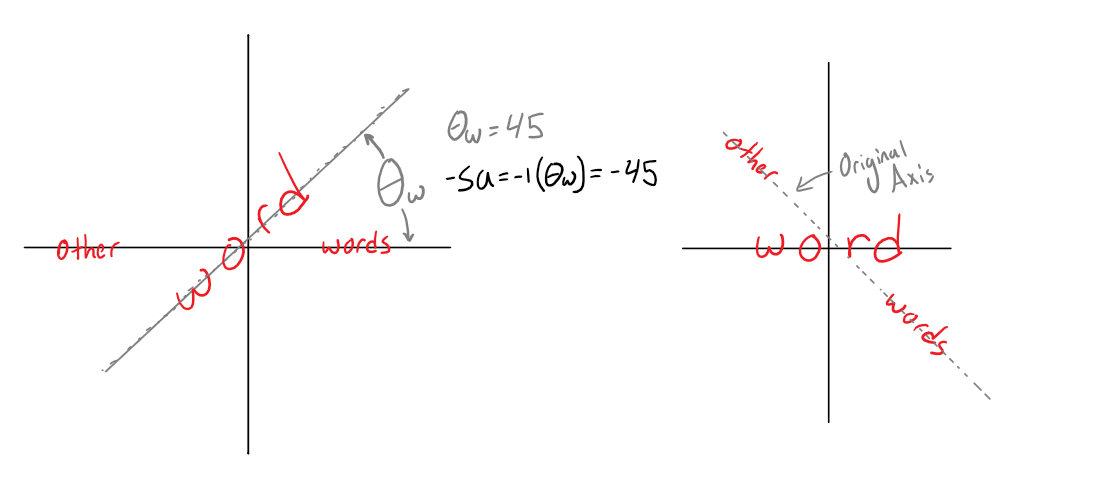 other word words
θw
θw = 45
-sa = -1(θw) = -45
other
Original
Axis
word
words